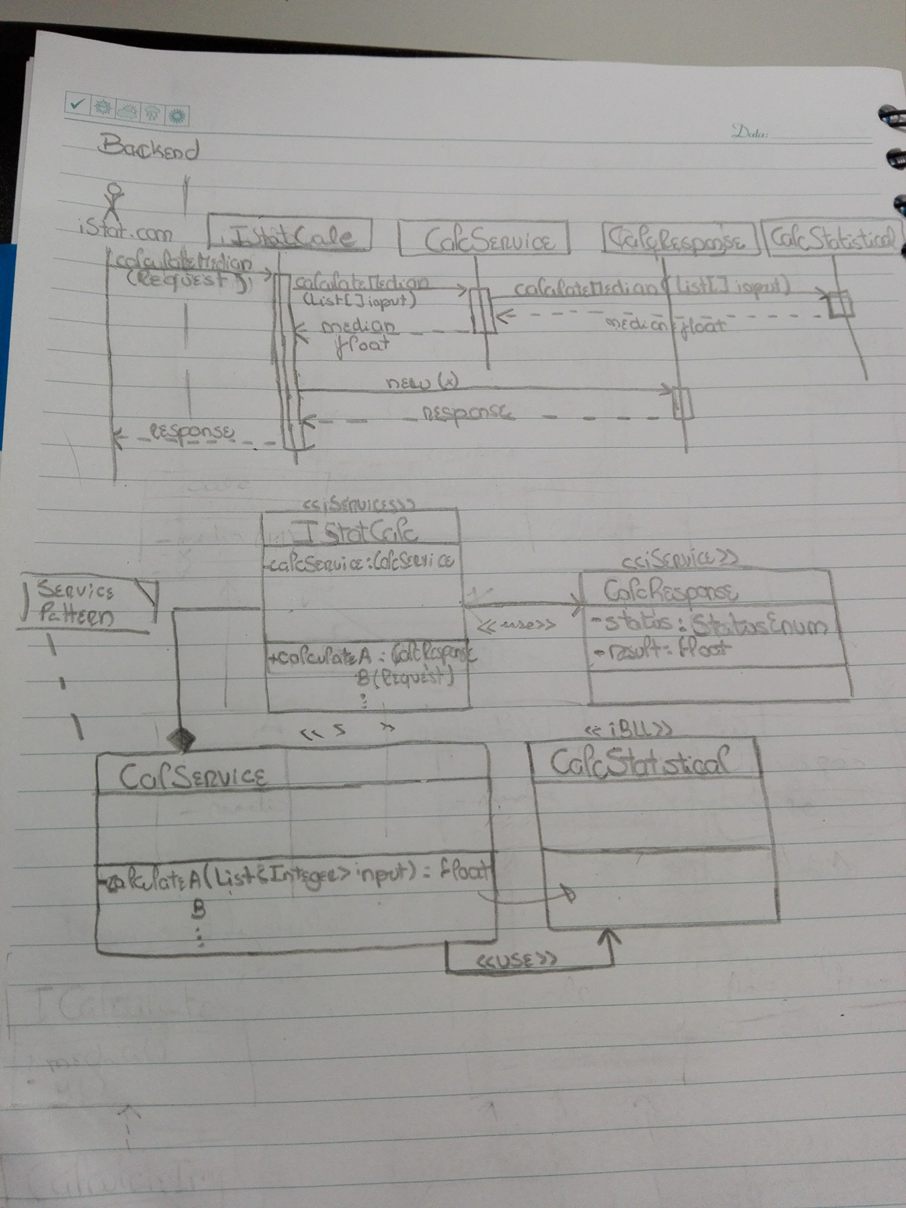 Data:
Backend
iStat.com
IStatCalc
CalcService
CalcResponse
CalcStatistical
calculateMedian
(Request)
calculateMedian
(List[] input)
calculateMedian (List[] input)
median
float
median float
new (x)
response
response
<<iServices>>
IStatCalc
-calcService: CalcService
+calculateA : CalcResponse
B(Request)
:
Service
Pattern
<<use>>
<<iService>>
CalcResponse
-status: StatusEnum
-result: float
<< S >>
CalService
-calculateA(List<Integer> input): float
B
:
<<iBLL>>
CalcStatistical
<<USE>>
ICalculate